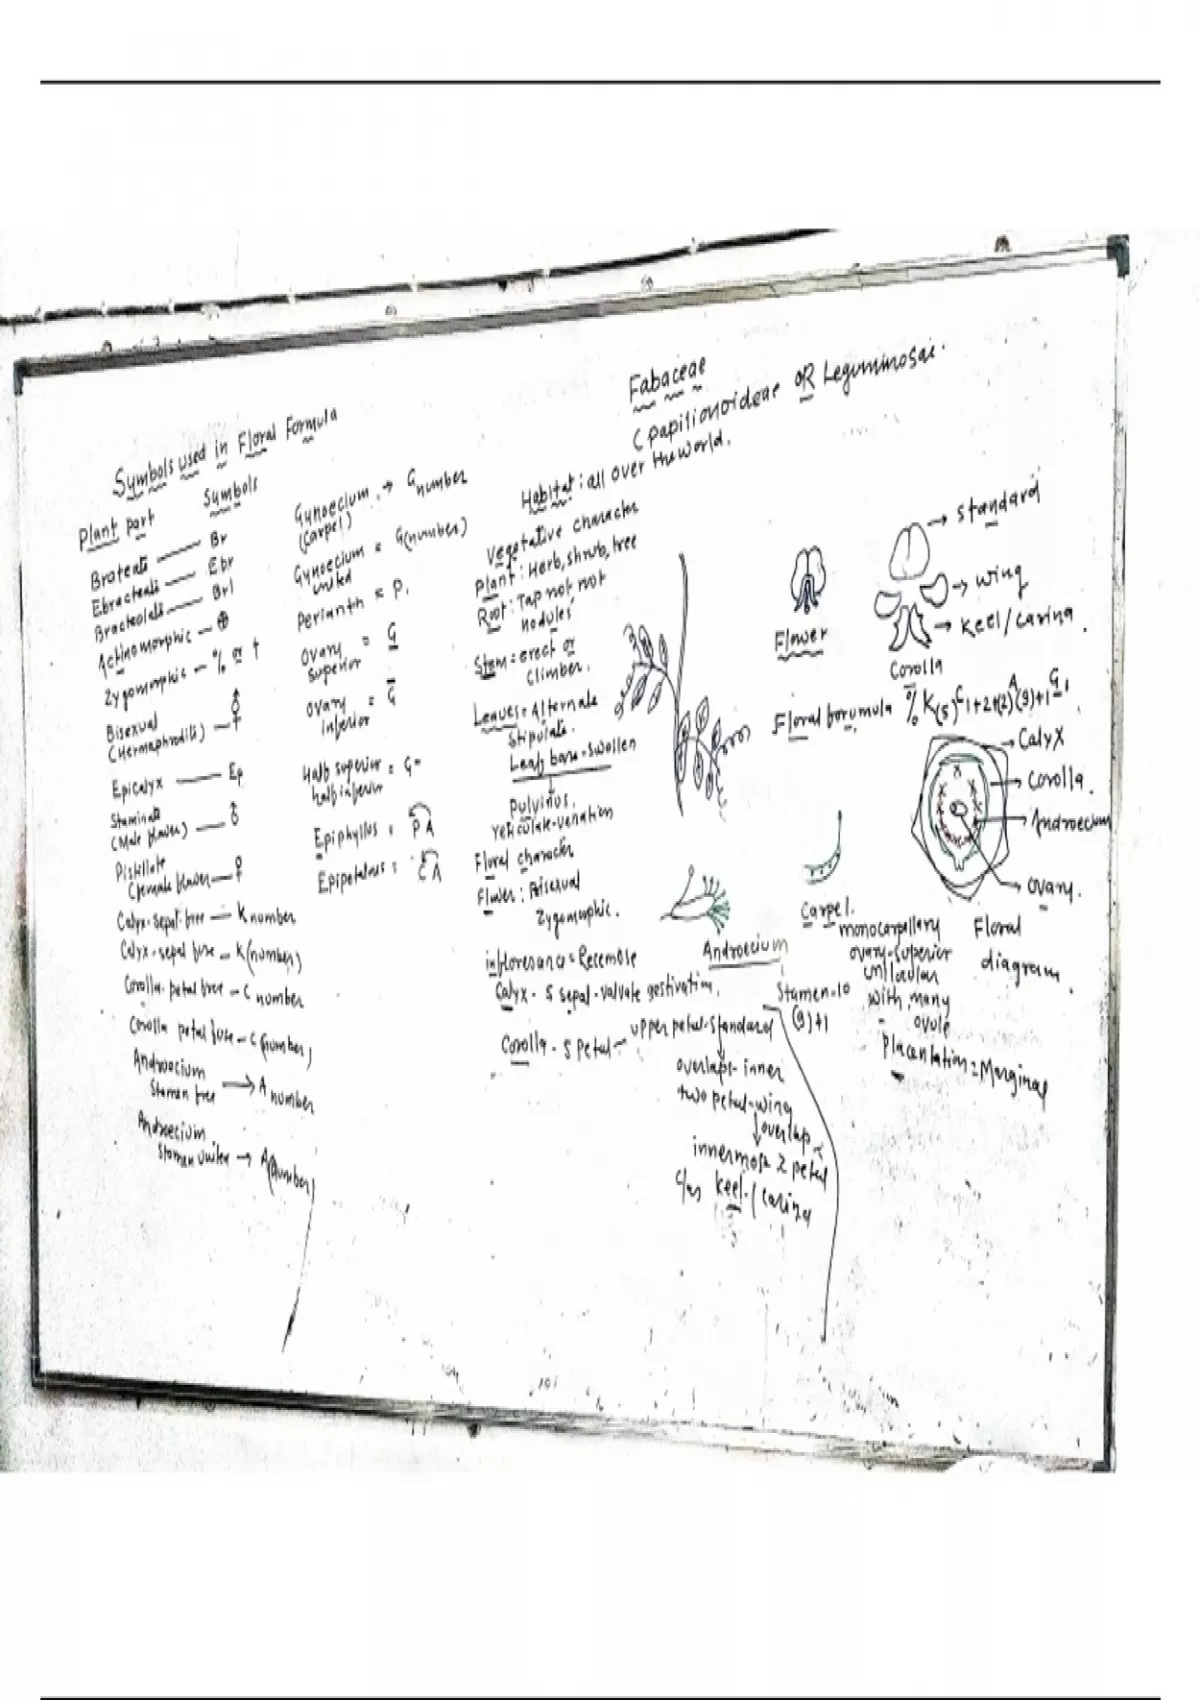 Symbols used in Floral Formula
Plant part Symbols
Brateate — Br
Ebracteate — Ebr
Bracteolate — Brl
Actinomorphic — ⊕
Zygomorphic — % or †
Bisexual
(Hermaphrodite) — ⚥
Epicalyx — Ep
Staminate
(Male flower) — ♂
Pistillate
(female flower — ♀
Calyx-sepal-free — K number
Calyx-sepal fuse — K(number)
Corolla-petal free — C number
Corolla petal fuse — C(number)
Androecium
Stamen free → A number
Androecium
Stamen unites → A(number)
Gynoecium → G number
(Carpel)
Gynoecium = G(number)
united
Perianth = P.
Ovary = G̲
superior
Ovary = G̅
inferior
Half superior = G-
half inferior
Epiphyllus = P A
Epipetalous = C A
Fabaceae
(Papilionoideae OR Leguminosae.
Habitat: all over the world.
Vegetative character
Plant: Herb, shrub, tree
Root: Tap root, root
nodules
Stem = erect or
Climber.
Leaves = Alternate
Stipulate.
Leaf base-swollen
pulvinus.
reticulate-venation
Floral character
Flower: Bisexual
Zygomorphic.
inflorescence = Recemose
Calyx - 5 sepal-valvate aestivation.
Corolla - 5 Petal - upper petal-standard
overlaps-inner
two petal-wing
overlap
innermost 2 petal
c/as keel / carina
Flower
standard
wing
Keel / carina.
Corolla
Floral forumula % K(5) C1+2+(2) A(9)+1 G1
Calyx
Corolla.
Androecium
Ovary.
Floral
diagram.
Androecium
Stamen-10
(9)+1
Carpel.
monocarpellary
ovary-superior
unilocular
with, many
ovule
Placentation = Marginal